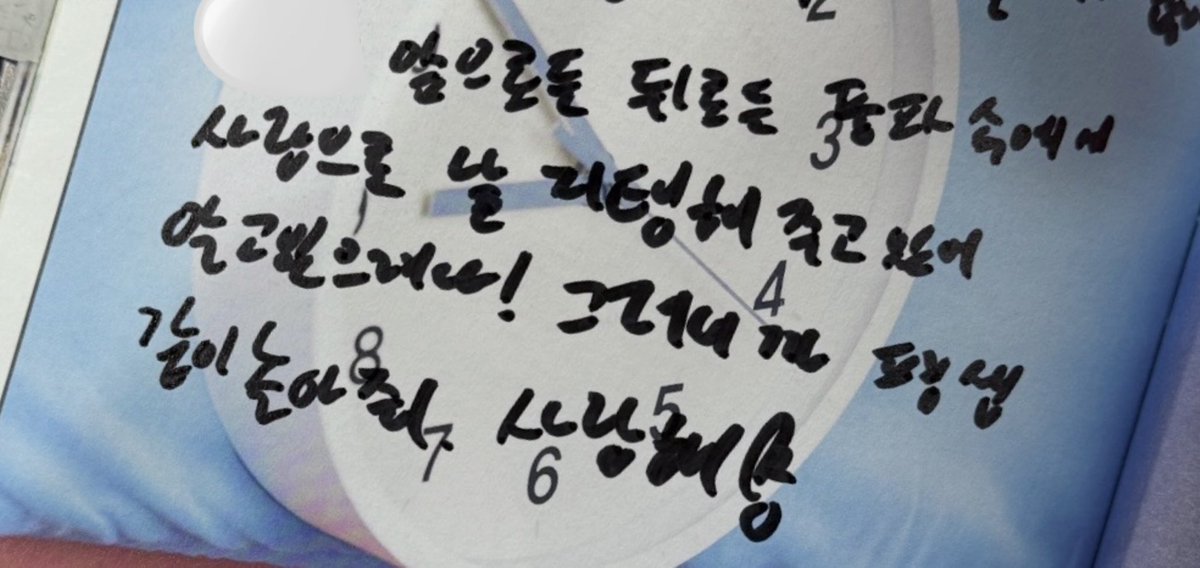 2
앞으로든 뒤로든 풍파 속에서
3
사랑으로 날 지탱해 주고 있어
알고있으려나! 그러니까 평생
4
같이 놀아줘. 사랑해용
8
5
7
6